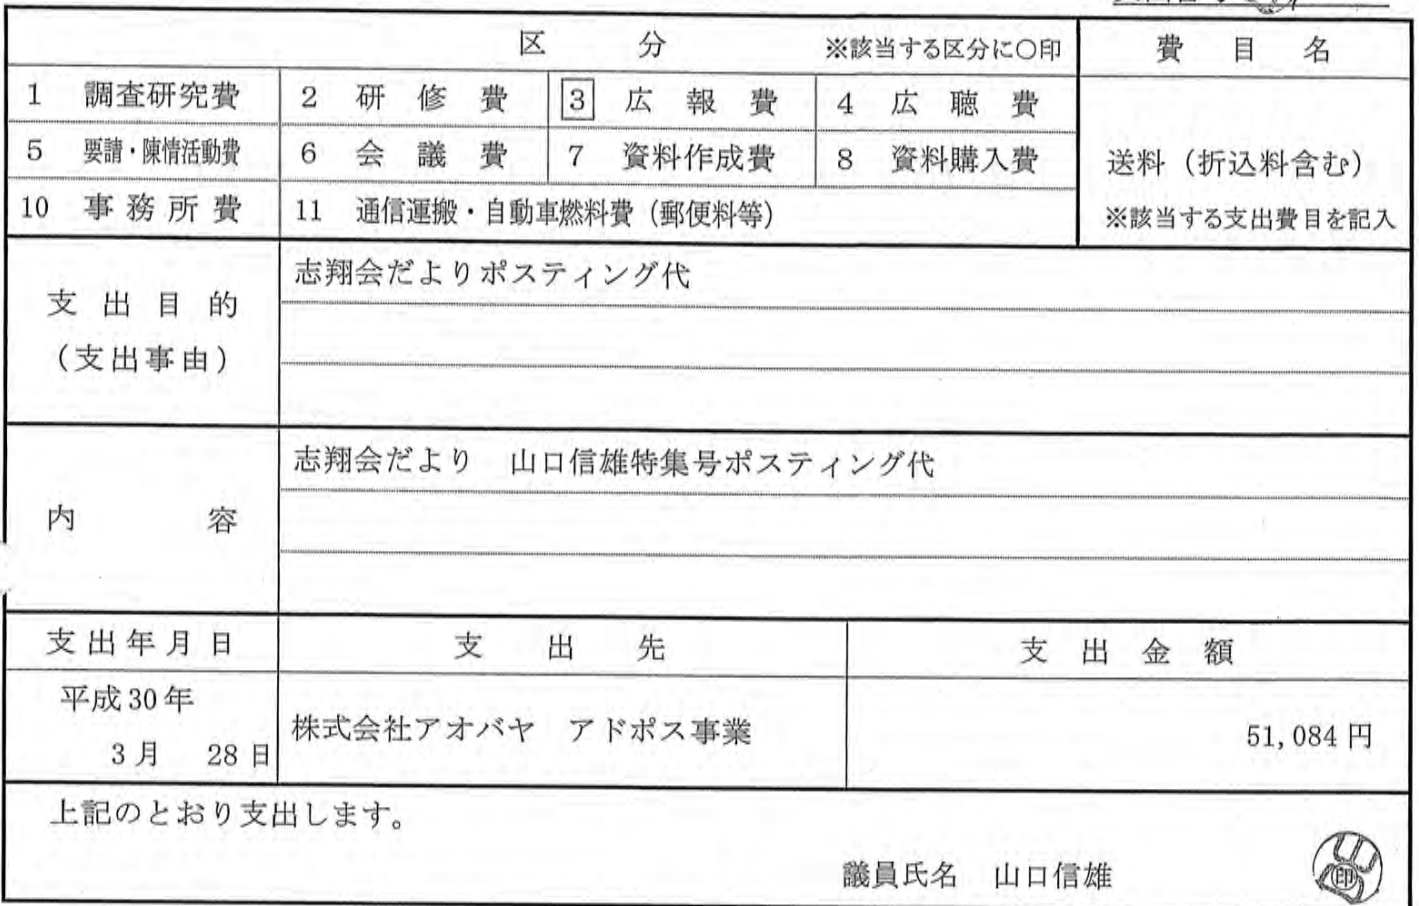 区 分 ※該当する区分に○印 費目名
1 調査研究費 2 研修費 3 広報費 4 広聴費
5 要請・陳情活動費 6 会議費 7 資料作成費 8 資料購入費
送料（折込料含む）
10 事務所費 11 通信運搬・自動車燃料費（郵便料等）
※該当する支出費目を記入
支出目的
（支出事由）
志翔会だよりポスティング代
内容
志翔会だより 山口信雄特集号ポスティング代
支出年月日 支出先 支出金額
平成30年
3月 28日
株式会社アオバヤ アドポス事業
51,084円
上記のとおり支出します。
議員氏名 山口信雄
印